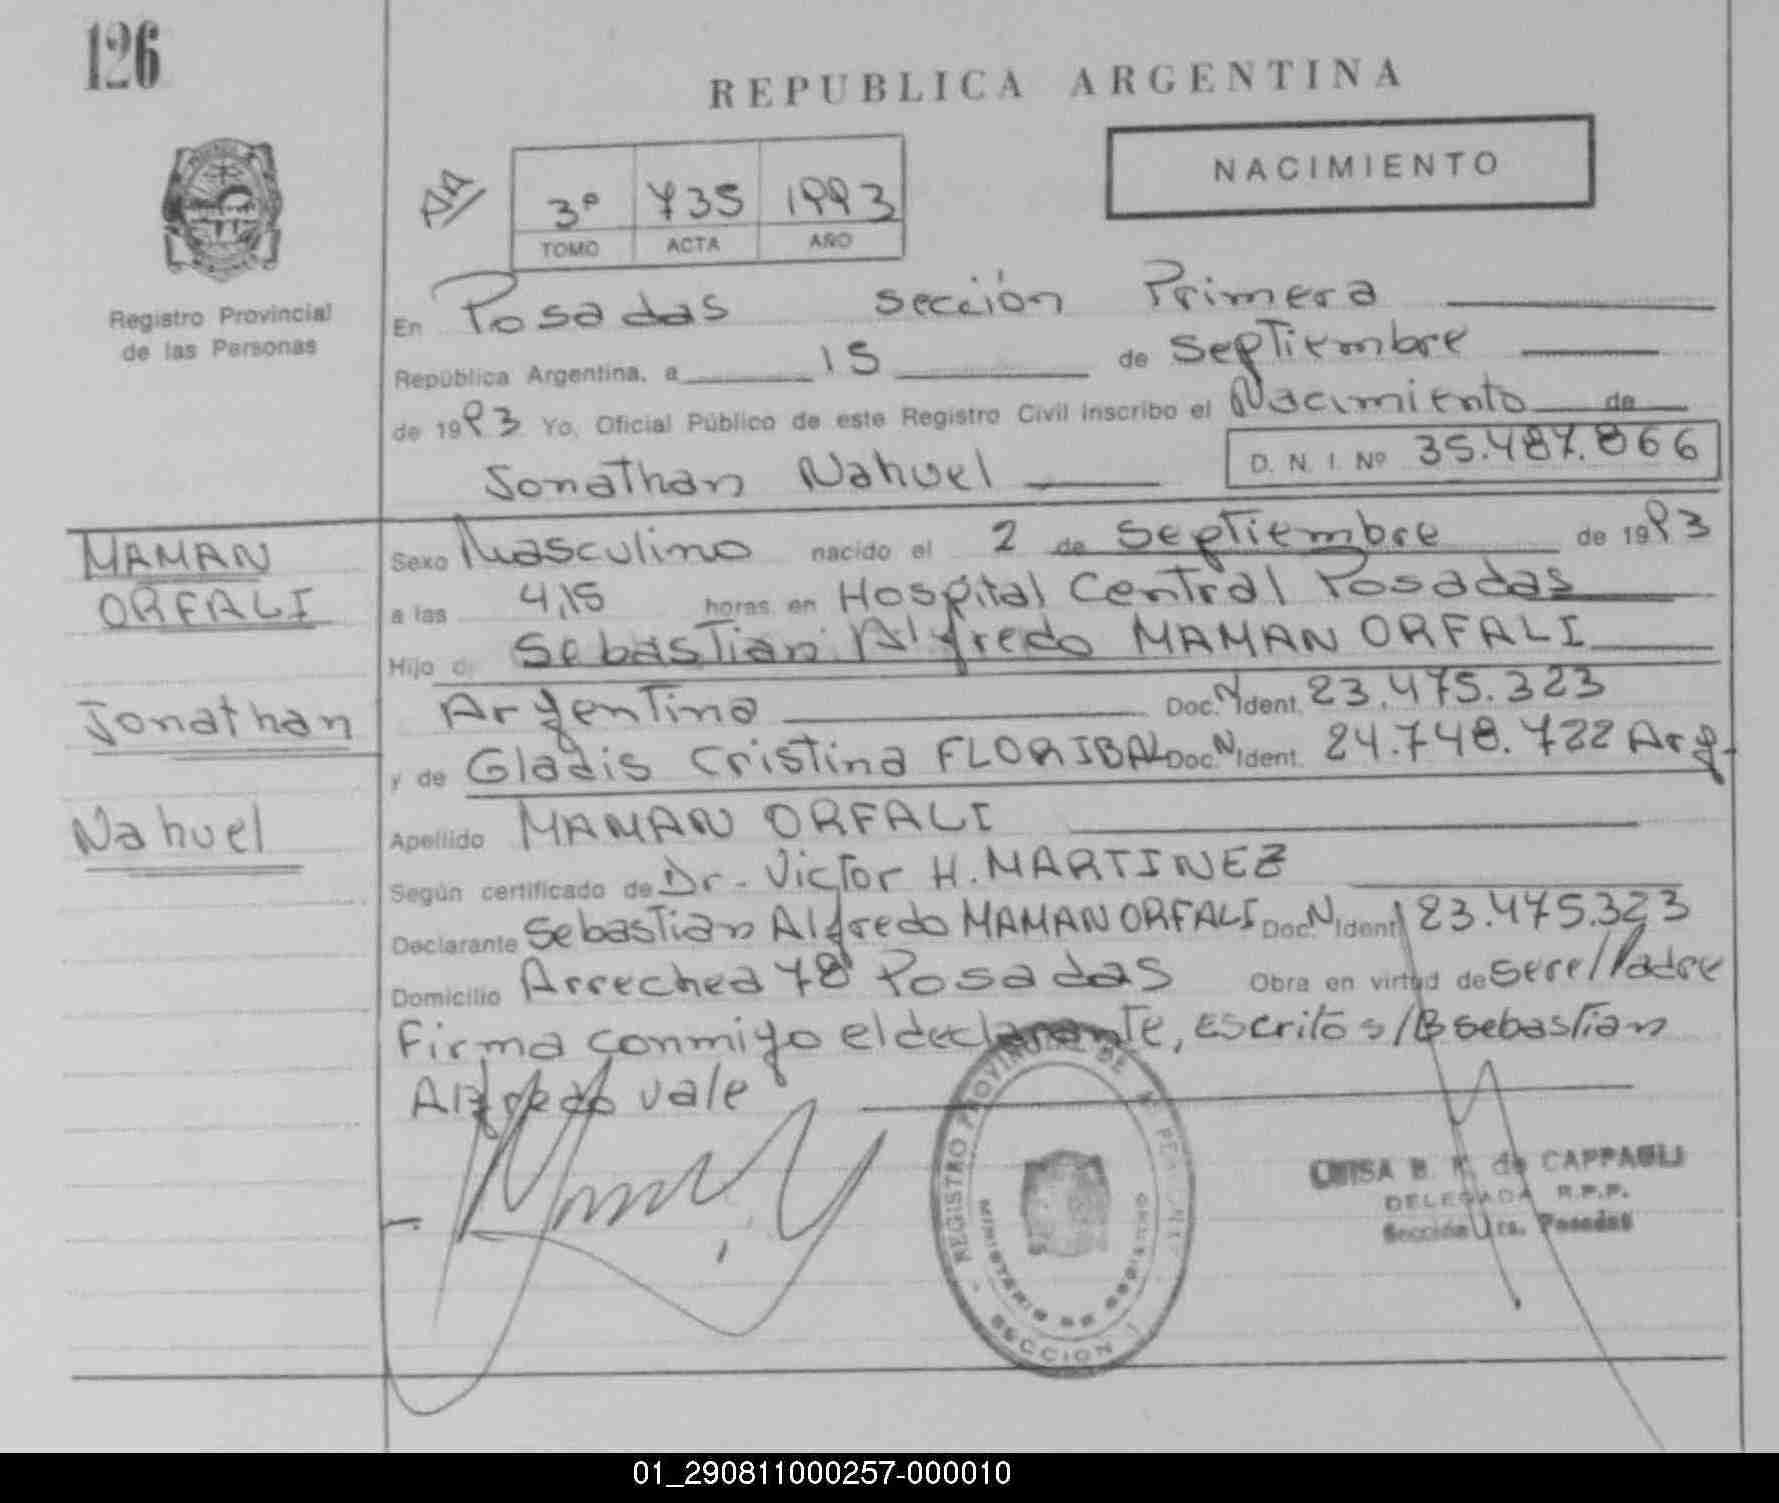 126
REPUBLICA ARGENTINA
NACIMIENTO
3º 735 1993
TOMO ACTA AÑO
Registro Provincial
de las Personas
En Posadas sección Primera
República Argentina, a 15 de Septiembre
de 1993 Yo, Oficial Público de este Registro Civil inscribo el Nacimiento de
Jonathan Nahuel D. N. I. Nº 35.487.866
MAMAN
ORFALI
Jonathan
Nahuel
Sexo Masculino nacido el 2 de Septiembre de 1993
a las 4,15 horas en Hospital Central Posadas
Hijo de Sebastian Alfredo MAMAN ORFALI
Argentina Doc. N Ident. 23.475.323
y de Gladis Cristina FLORIBAL Doc. N Ident. 24.748.722 Arg.
Apellido MAMAN ORFALI
Según certificado de Dr. Victor H. MARTINEZ
Declarante Sebastian Alfredo MAMAN ORFALI Doc. N Ident 23.475.323
Domicilio Arrechea 78 Posadas Obra en virtud de ser el Padre
Firma conmigo el declarante, Escritó s/B Sebastian
Alfredo vale
REGISTRO PROVINCIAL DE
MINISTERIO DE GOBIERNO
SECCION 1
LUISA B. de CAPPAGLI
DELEGADA R.P.P.
Sección 1ra. Posadas
01_290811000257-000010